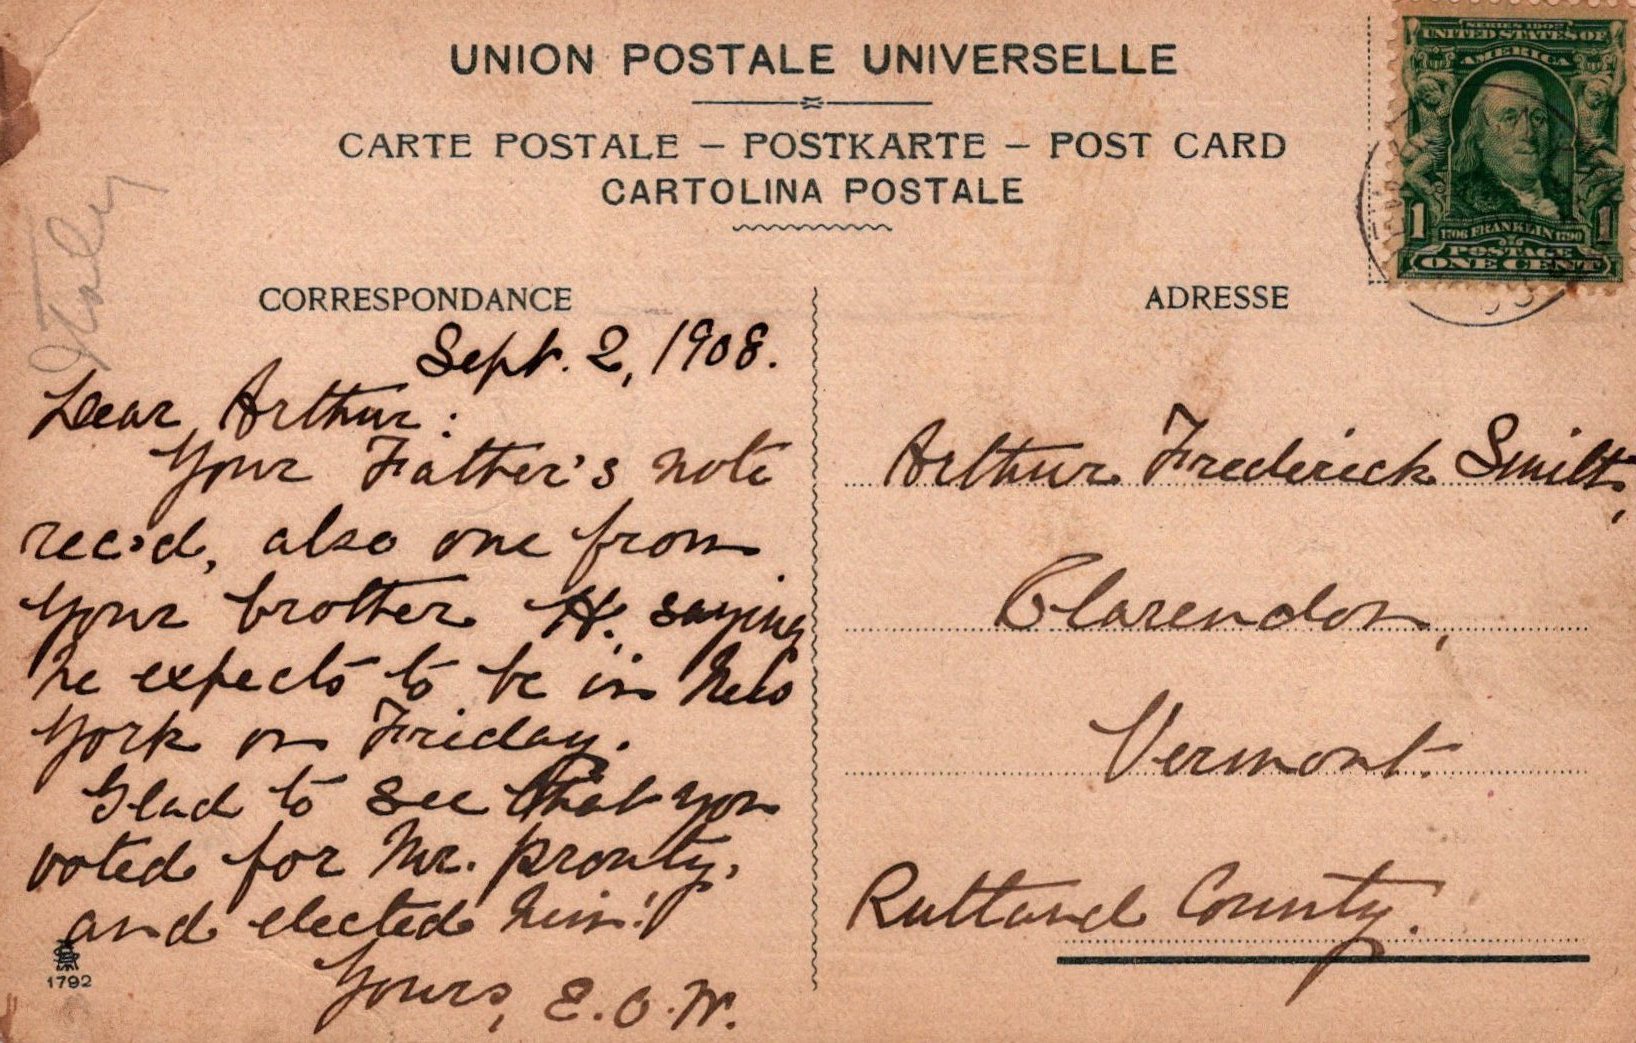 UNION POSTALE UNIVERSELLE
CARTE POSTALE – POSTKARTE – POST CARD
CARTOLINA POSTALE
SERIES 1902
UNITED STATES OF
AMERICA
1 1
1706 FRANKLIN 1790
POSTAGE
ONE CENT
Italy
CORRESPONDANCE
Sept. 2, 1908.
Dear Arthur:
Your Father's note
rec'd, also one from
your brother H. saying
he expects to be in New
York on Friday.
Glad to see that you
voted for Mr. Prouty,
and elected him!
Yours, E. O. W.
1792
ADRESSE
Arthur Frederick Smith,
Clarendon,
Vermont.
Rutland County.